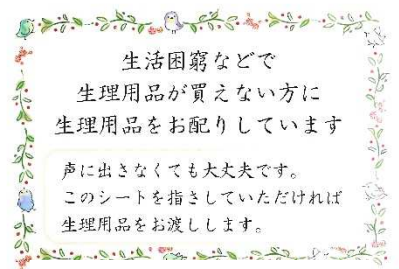 生活困窮などで
生理用品が買えない方に
生理用品をお配りしています
声に出さなくても大丈夫です。
このシートを指さしていただければ
生理用品をお渡しします。